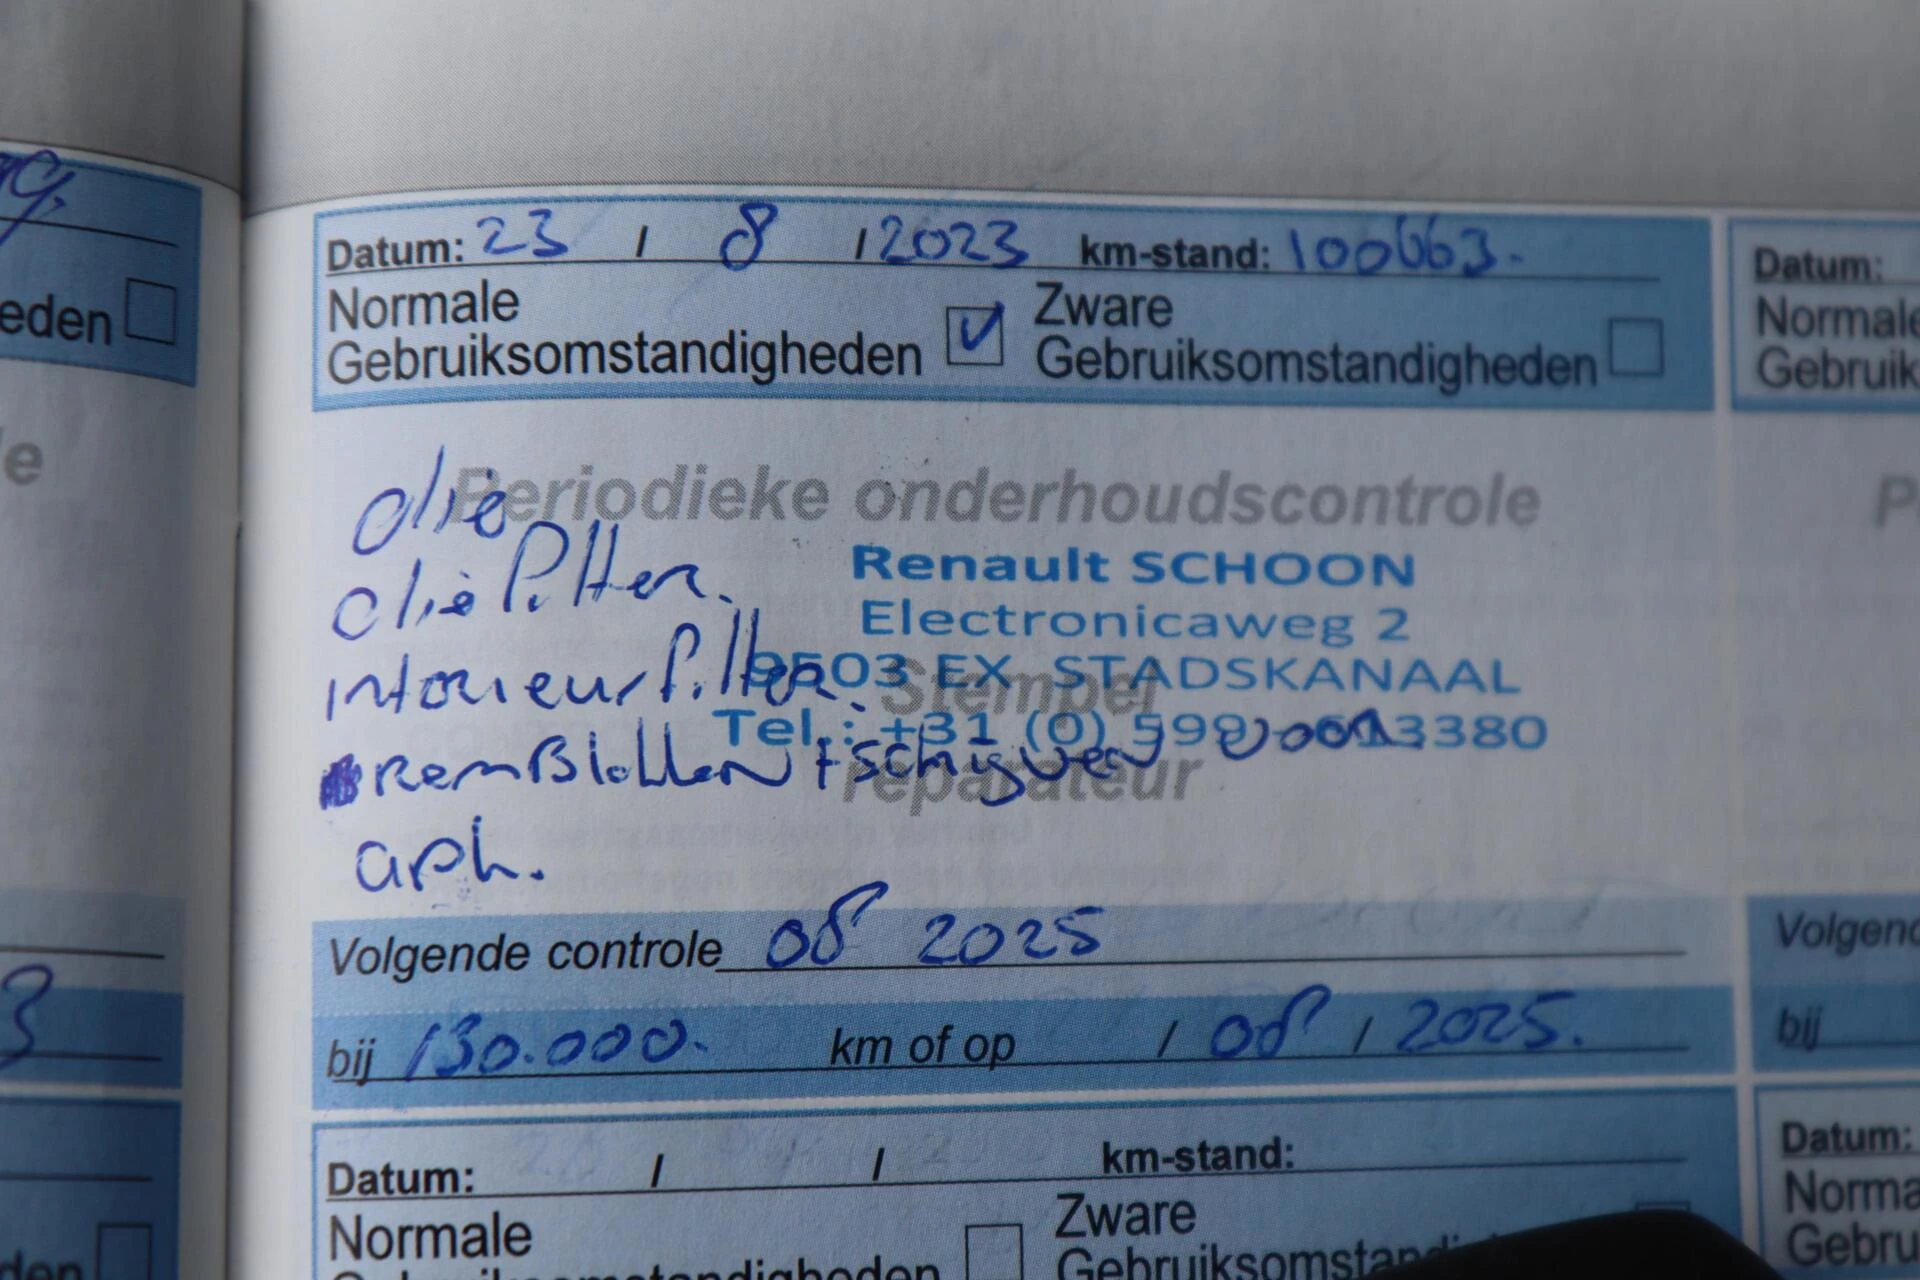 Datum: 23 / 8 / 2023 km-stand: 100663.
Normale Zware
Gebruiksomstandigheden Gebruiksomstandigheden
Periodieke onderhoudscontrole
olie
oliefilter.
interieurfilter.
Remblokken + schijven voor
apk.
Renault SCHOON
Electronicaweg 2
9503 EX STADSKANAAL
Tel.: +31 (0) 599-613380
Stempel
reparateur
Volgende controle 08 2025
bij 130.000. km of op / 08 / 2025.
Datum: / / km-stand:
Normale Zware
Datum:
Normale
bij
Datum: